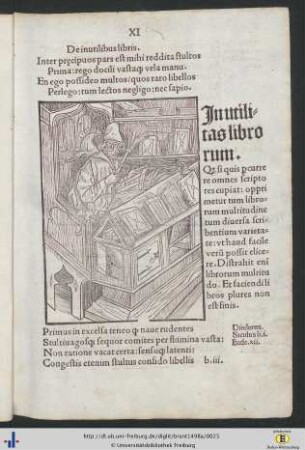 XI
De inutilibus libris.
Inter precipuos pars est mihi reddita stultos
Prima: rego docili vastaq vela manu.
En ego possideo multos/quos raro libellos
Perlego: tum lectos negligo: nec sapio.
Inutili-
tas libro
rum.
Qz si quis pcurre
re omnes scripto
res cupiat: oppri
metur tum libro-
rum multitudine
tum diuersa scri-
bentium varieta-
te: vt haud facile
verū possit elice-
re. Distrahit em̄
librorum multitu
do. Et faciendi li
bros plures non
est finis.
Primus in excelsa teneo q naue rudentes
Stultiuagosq sequor comites per flumina vasta:
Non ratione vacat certa: sensuq latenti:
Congestis etenim stultus confido libellis
Diodorus
Siculus li.i.
Eccle.xii.
b.iii.
http://dl.ub.uni-freiburg.de/diglit/brant1498a/0025
© Universitätsbibliothek Freiburg